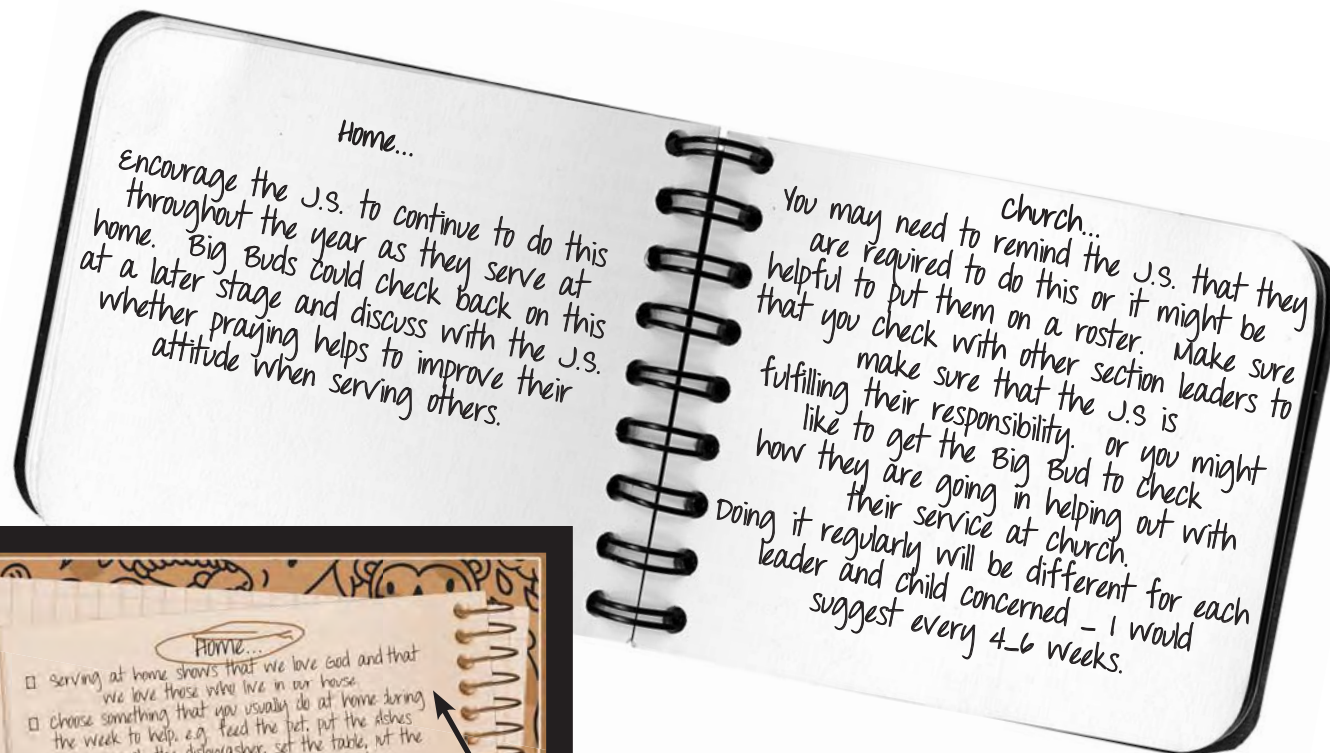 Home...
Encourage the J.S. to continue to do this
throughout the year as they serve at
home. Big Buds could check back on this
at a later stage and discuss with the J.S.
whether praying helps to improve their
attitude when serving others.
Church...
You may need to remind the J.S. that they
are required to do this or it might be
helpful to put them on a roster. Make sure
that you check with other section leaders to
make sure that the J.S is
fulfilling their responsibility. or you might
like to get the Big Bud to check
how they are going in helping out with
their service at church.
Doing it regularly will be different for each
leader and child concerned _ I would
suggest every 4_6 weeks.
Home...
serving at home shows that we love God and that
we love those who live in our house
choose something that you usually do at home during
the week to help. e.g. feed the pet, put the dishes
the dishwasher, set the table, put the